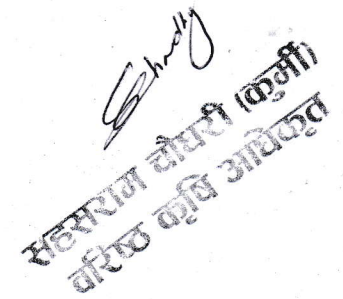 सहसराम चौधरी (कुर्मी)
वरिष्ठ कृषि अधिकृत